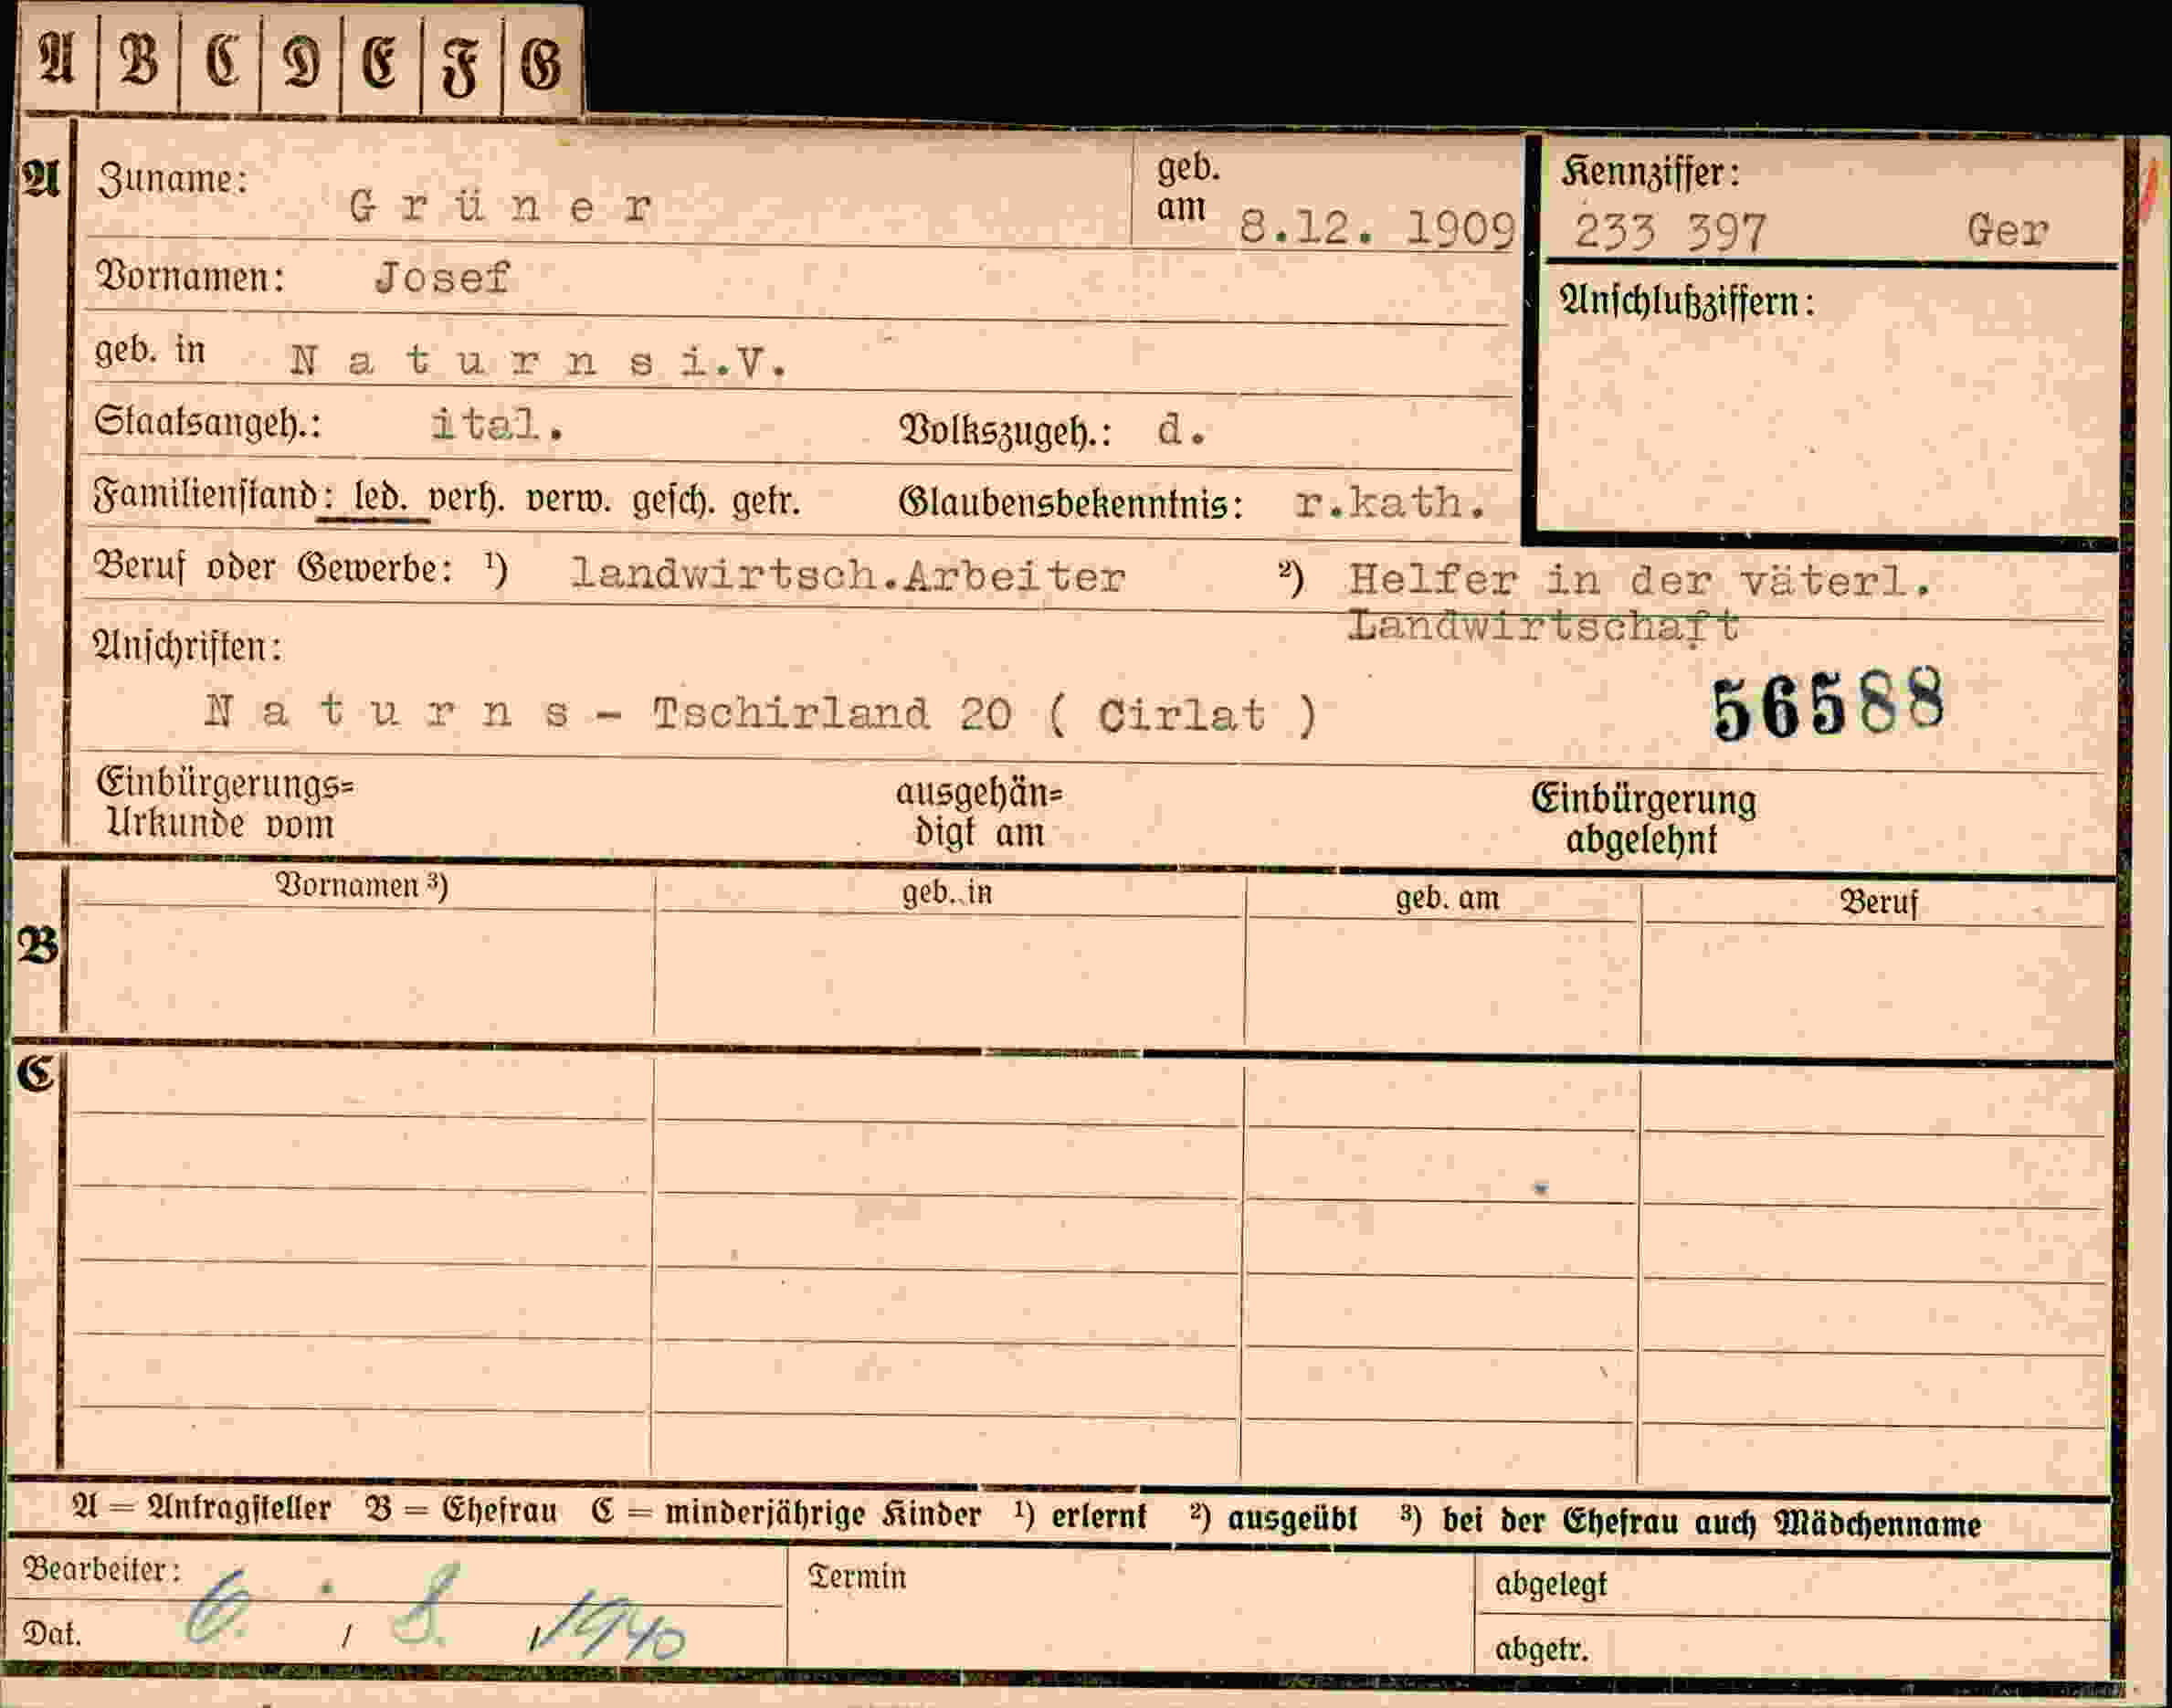 A B C D E F G
A Zuname: Grüner geb. am 8.12. 1909 Kennziffer: 233 397 Ger
Vornamen: Josef Anschlußziffern:
geb. in Naturns i.V.
Staatsangeh.: ital. Volkszugeh.: d.
Familienstand: led. verh. verw. gesch. getr. Glaubensbekenntnis: r.kath.
Beruf oder Gewerbe: ¹) landwirtsch.Arbeiter ²) Helfer in der väterl.
Landwirtschaft
Anschriften:
Naturns - Tschirland 20 ( Cirlat ) 56588
Einbürgerungs= ausgehän= Einbürgerung
Urkunde vom digt am abgelehnt
Vornamen ³) geb. in geb. am Beruf
B
C
A = Antragsteller B = Ehefrau C = minderjährige Kinder ¹) erlernt ²) ausgeübt ³) bei der Ehefrau auch Mädchenname
Bearbeiter: Termin abgelegt
Dat. 6. / 8. 1940 abgetr.